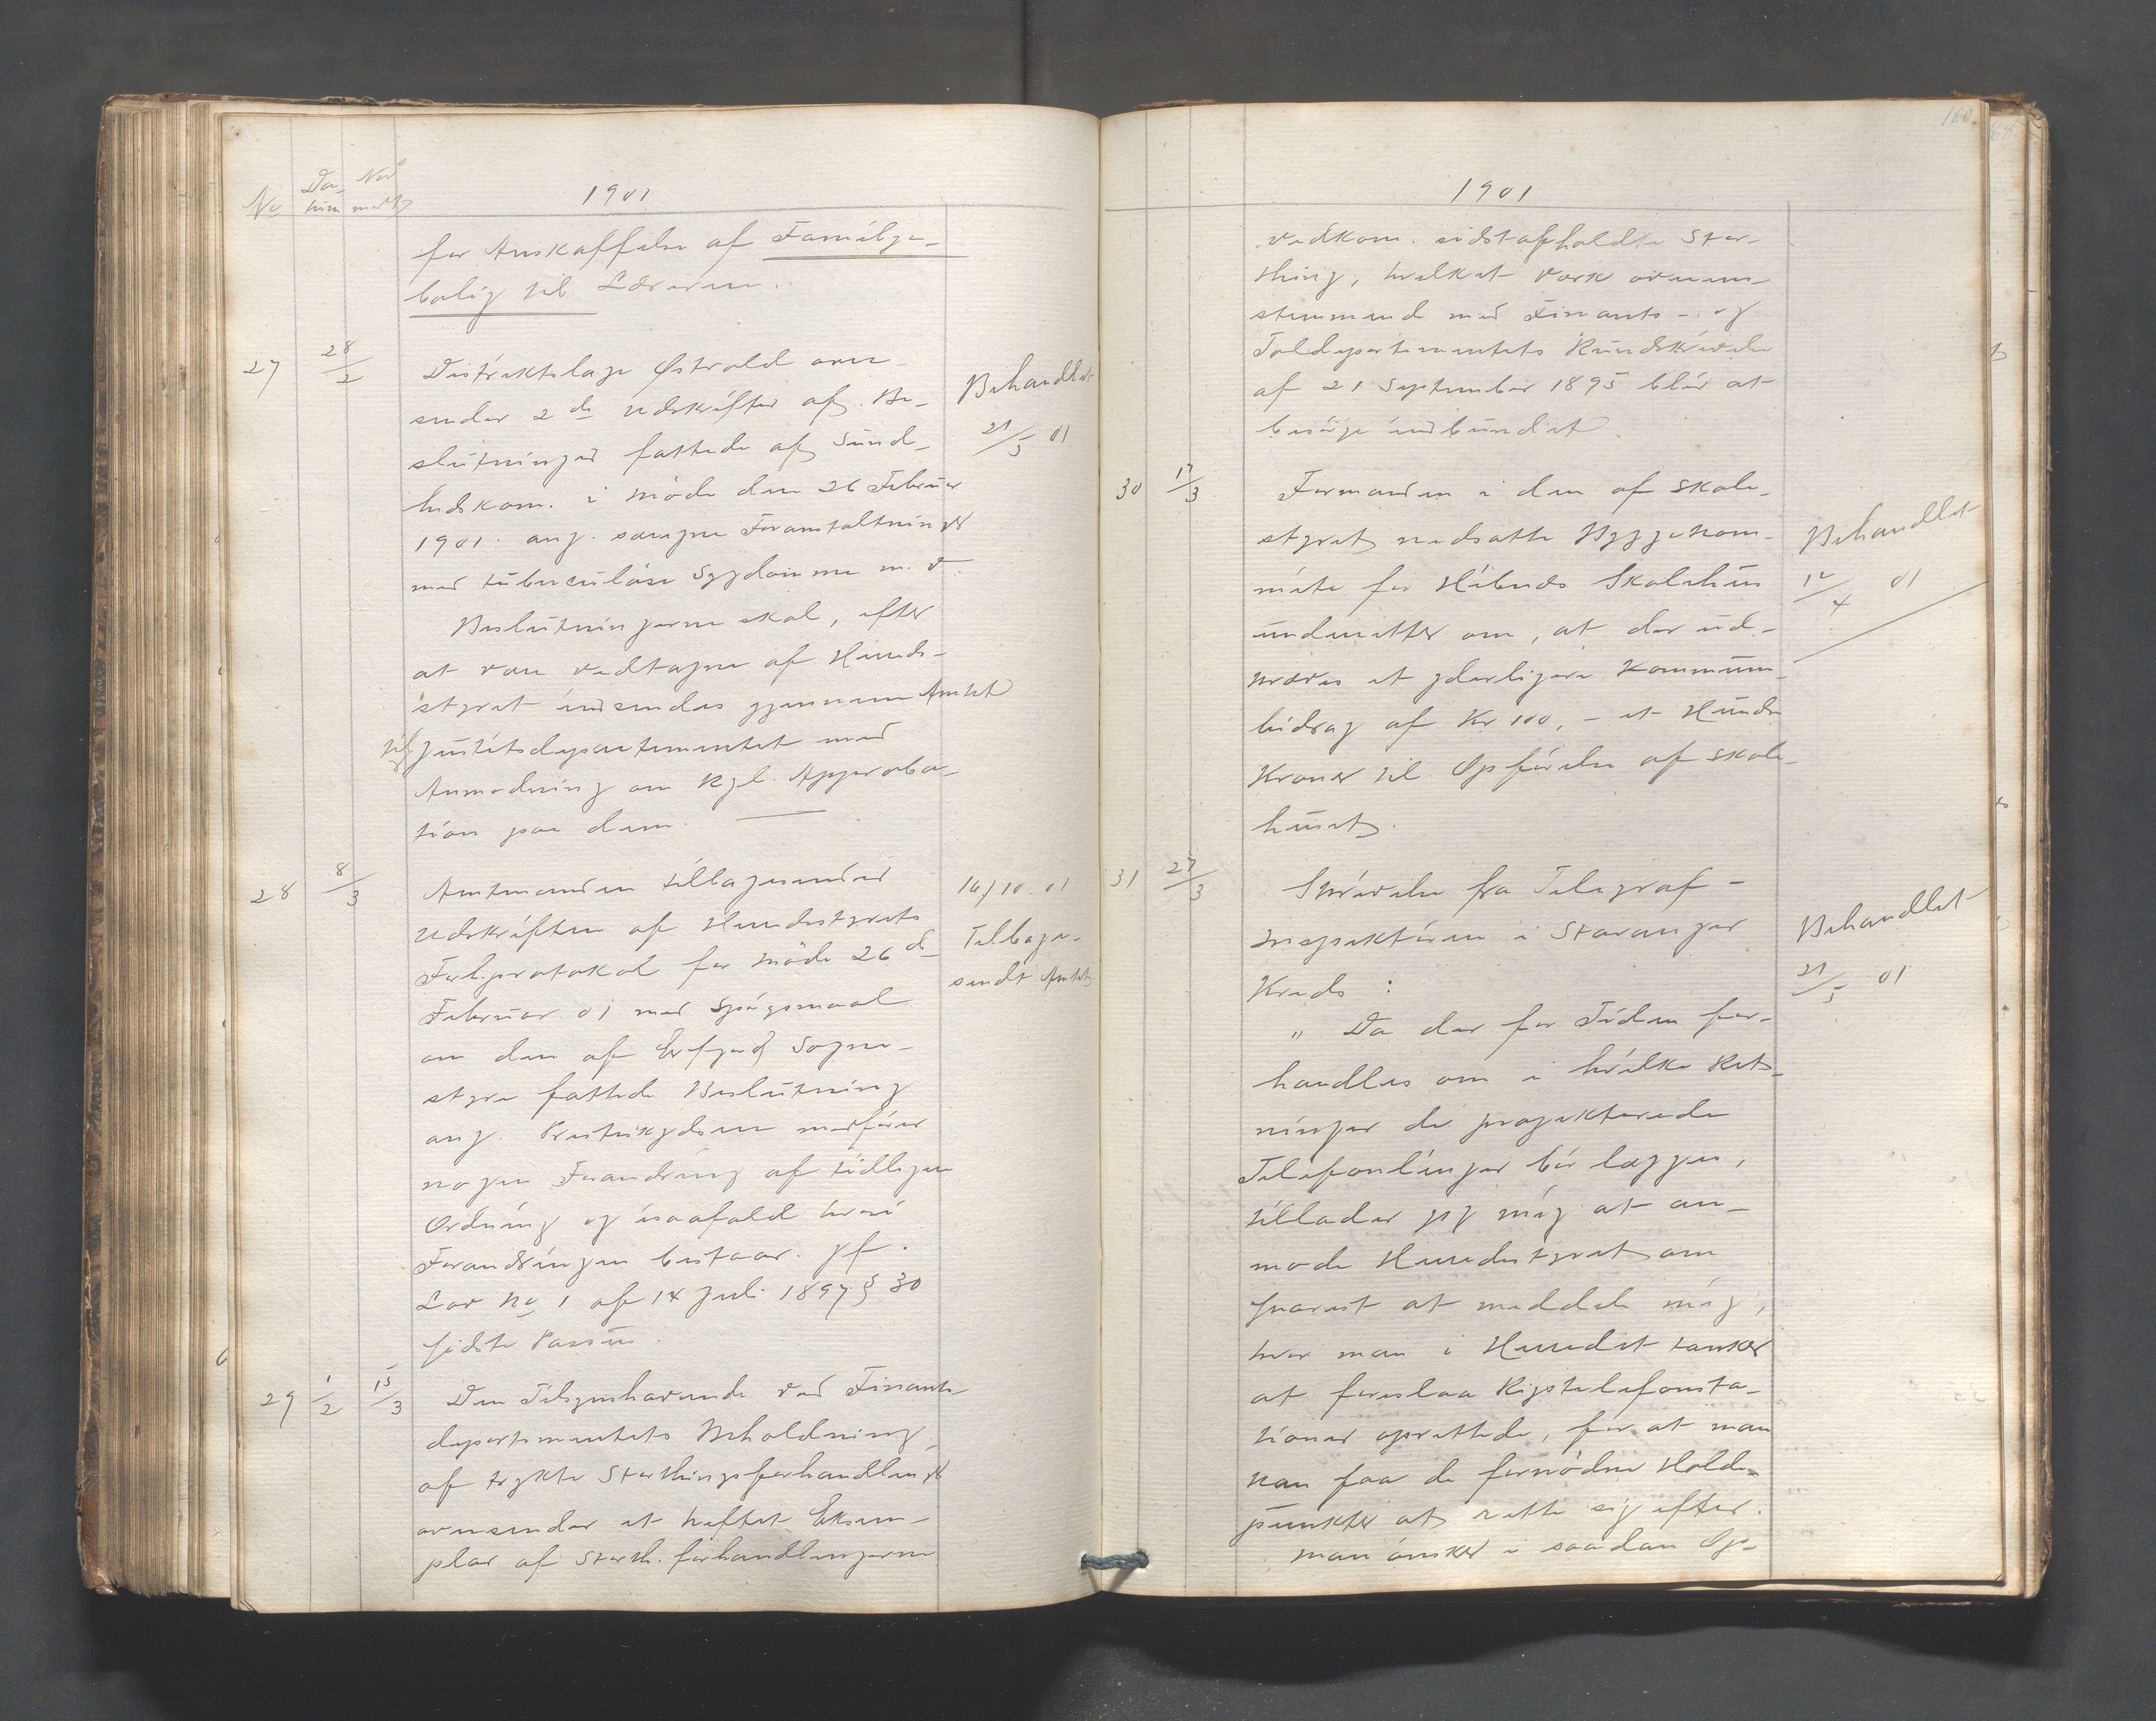 No Da- Mod
tum mat
1901
for Anskaffelse af Familje-
bolig til Læreren.
27 28/2 Distriktslæge Østvold over-
sender 2de Udskrifter af Be-
slutninger fattede af Sund-
hedskom. i Møde den 26 Februar
1901. ang. Foranstaltninger
med tuberculøse Sygdomme m. v.
Beslutningerne skal, efter
at være vedtagne af Hereds-
styret indsendes gjennem Amtet
til Justitsdepartementet med
Anmodning om Kgl. Approba-
tion paa dem.
Behandlet
21/5 01
28 8/3 Amtmanden tilbagesender
Udskriften af Heredstyrets
Forh.protokol for Møde 26de
Februar 01 med Spørgsmaal
om den af Erfjord Sogne-
styre fattede Beslutning
ang. medfører
nogen Forandring af tidligere
Ordning og isaafald hvori
Forandringen bestaar. jf.
Lov No 1 af 14 Juli 1897 § 30
sidste Passus.
16/10. 01
Tilbage-
sendt Amtet
29 1/2 15/3 Den Tilsynshavende ved Finants-
departementets Beholdning
af trykte Storthingsforhandlinger
oversender et heftet Eksem-
plar af Storth. forhandlingerne
160
68
1901
vedkom. sidstafholdte Stor-
thing, hvilket Værk overens-
stemmende med Finants- og
Tolddepartementets Rundskrivelse
af 21 September 1895 blir at
besørge indbundet.
30 17/3 Formanden i den af Skole-
styret nedsatte Byggekom-
mite for Hebnes Skolehus
underretter om, at der ud-
kræves et yderligere Kommune-
bidrag af Kr 100,- et Hundre
Kroner til Opførelse af Skole-
huset.
Behandlet
12/4 01
31 27/3 Skrivelse fra Telegraf-
inspektøren i Stavanger
Kreds :
" Da der for Tiden for-
handles om i hvilke Ret-
ninger de projekterede
Telefonlinjer bør lægges,
tillader jeg mig at an-
mode Heredstyret om
snarest at meddele mig,
hvor man i Heredet tænker
at foreslaa Rigstelefonsta-
tioner oprettede, for at man
kan faa de fornødne Holde-
punkter at rette sig efter.
Man ønsker i saadan Op-
Behandlet
21/5 01